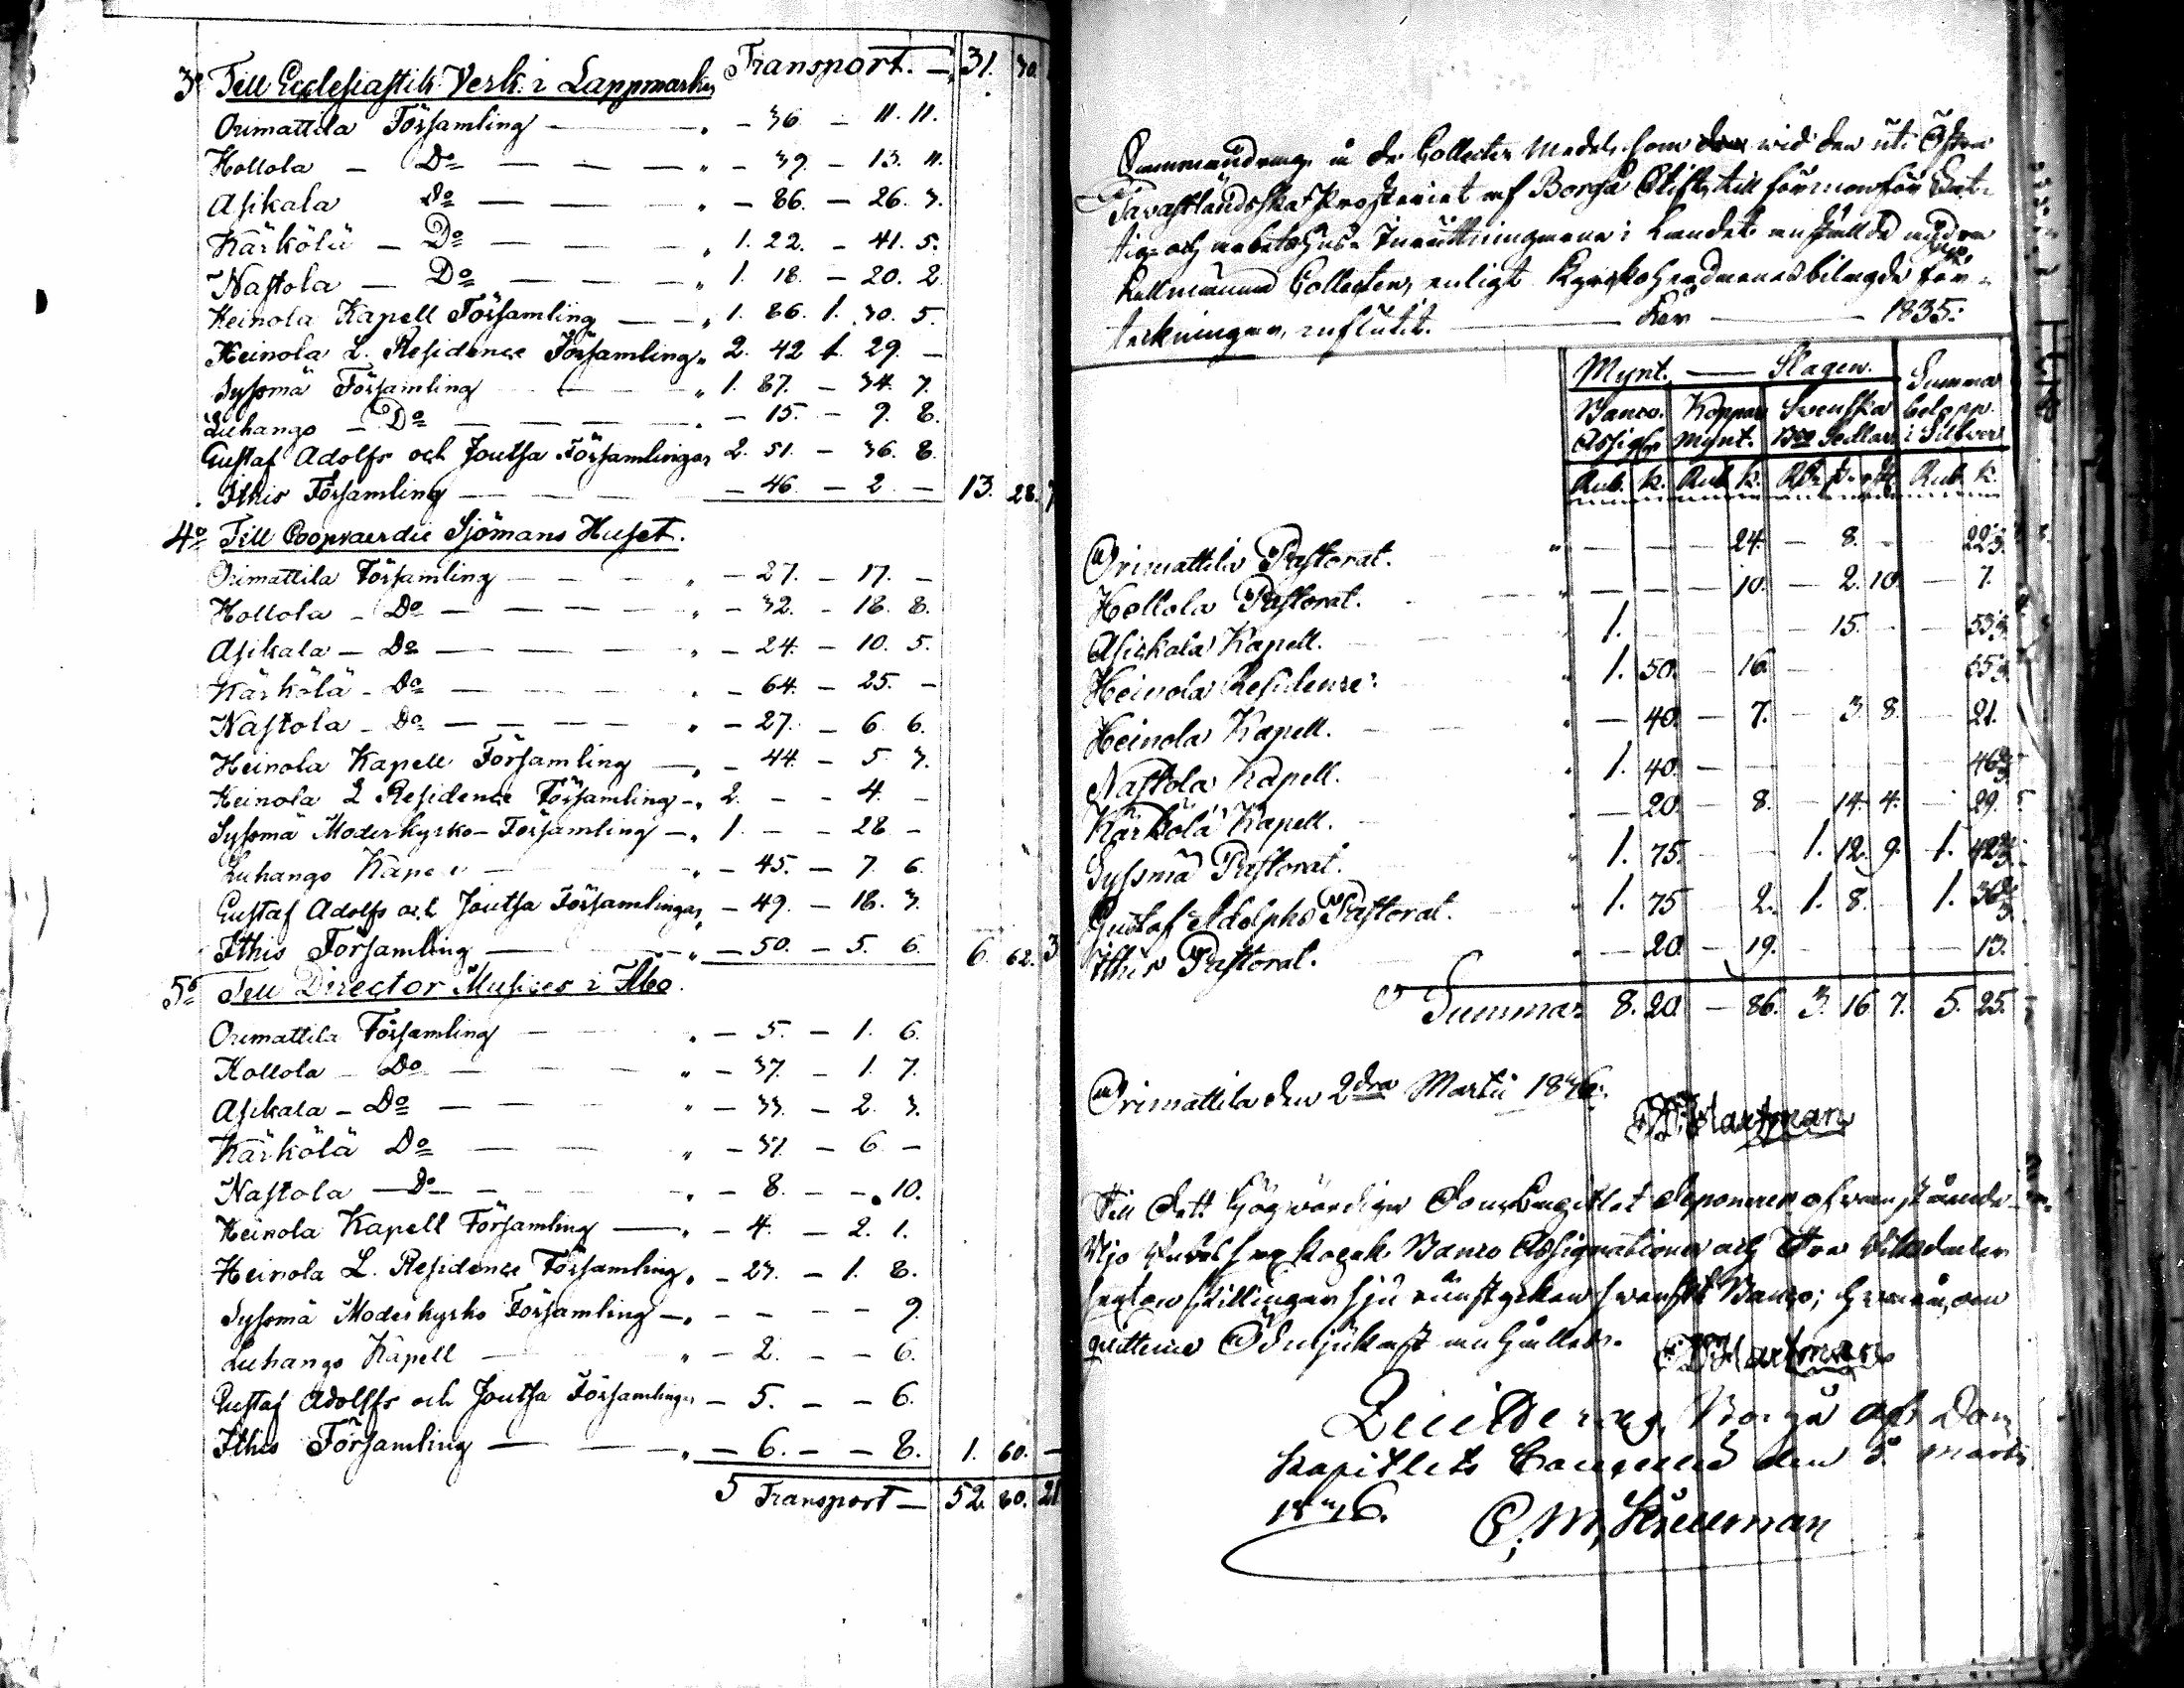 Transport. — 31. 30.
3o Till Ecclesiastik Verk. i Lappmarken
Orimattila Församling — " — 36 — 11. 11.
Hollola — Do — — — " — 39. — 13. 11.
Asikala Do — — — " — 86. — 26. 3.
Kärkölä — Do — — — " 1. 22. — 41. 5.
Nastola — Do — — — " 1. 18. — 20. 2.
Heinola Kapell Församling — — " 1. 86. 1. 30. 5.
Heinola L. Residence Församling " 2. 42 1. 29. —
Syssmä Församling — — " 1. 87. — 34. 7.
Luhango — Do — — — — " — 15. — 9. 8.
Gustaf Adolfs och Joutsa Församlingar 2. 51. — 36. 8.
Ithis Församling — — — — 46. — 2 — 13. 28. 7
4o Till Coopvaerdie Sjömans Huset.
Orimattila Församling — — — " — 27. — 17. —
Hollola — Do — — — — " — 32. — 18. 8.
Asikala — Do — — — — " — 24. — 10. 5.
Kärkölä — Do — — — " — 64. — 25. —
Nastola — Do — — — — " — 27. — 6. 6.
Heinola Kapell Församling — " — 44. — 5. 3.
Heinola L Residence Församling — " 2. — — 4. —
Syssmä Moderkyrko-Församling — " 1. — — 28 —
Luhango Kapell — — " — 45. — 7. 6.
Gustaf Adolfs och Joutsa Församlingar " — 49. — 18. 3.
Ithis Församling — — " — 50. — 5. 6. 6. 62. 3
5o Till Director Musices i Åbo.
Orimattila Församling — — " — 5. — 1. 6.
Hollola — Do — — — " — 37. — 1. 7.
Asikala — Do — — — " — 33. — 2. 3.
Kärkölä Do — — — " — 37. — 6 —
Nastola — Do — — — " — 8. — — 10.
Heinola Kapell Församling — " — 4. — 2. 1.
Heinola L. Residence Församling " — 23. — 1. 8.
Syssmä Moderkyrko Församling — " — — — — 9.
Luhango Kapell — — " — 2. — — 6.
Gustaf Adolffs och Joutsa Församlingar — 5. — — 6.
Ithis Församling — — — " — 6. — — 8. 1. 60. —
5 Transport — 52. 80. 21
de Collecter Medel, som vid den uti Östra
Tavastländska Prosteriet af Borgå Stift, till förmon för
tig- och arbetshus- Inrättningarne i Landet anställde
Collecten, enligt bilagde för-
teckningar, influtit. — 1835:
Mynt. — Slagen. Summa
Banco. Koppar Svenska belopp.
Assign. Mynt. Bco Sedlar i Silfver
Rub. k. Rub. k. Rub. k.
Orimattila Pastorat. " — — — 24. — 8. — — 22 2/3.
Hollola Pastorat. " — — — 10. — 2. 10. — 7.
Asikkala Kapell. " 1. — — — — 15. — — 53 1/3.
Heinola Residence. " 1. 50. — 16. — — — — 55 1/3.
Heinola Kapell. " — 40. — 7. — 3 8. — 21.
Nastola Kapell. " 1. 40. — — — — — — 46 2/3.
Kärkölä Kapell. " — 20. — 8. — 14. 4. — 29.
Syssmä Pastorat. " 1. 75. — — 1. 12. 9. 1. 42 2/3.
Gustaf Adolphs Pastorat. " 1. 75 — 2. 1. 8. — 1. 36 2/3.
Ithis Pastoral. " — 20. — 19. — — — — 13.
Summa: 8. 20. — 86. 3. 16 7. 5. 25.
Orimattila den 2dra Martii 1836.
Hartman
Till Dett Högvördiga DomCapitlet deponeras ofvanstående
Kopek. Banco Assignationer och Tre Riksdaler
sexton skillingar sju runstycken svenskt Banco; hvaröfver
qvittence Ödmjukast anhålles. Hartman
Borgå af Dom
kapitlets den 5 Martii
1836.